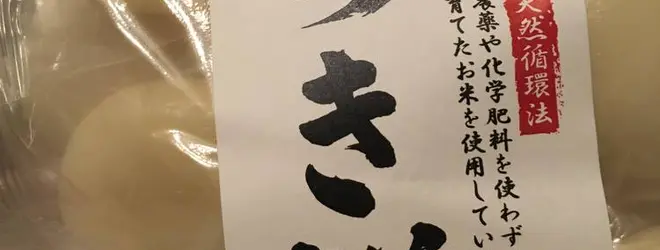 天然循環法
農薬や化学肥料を使わず
育てたお米を使用してい
き